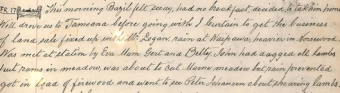 This morning Bazil felt seedy, had no breakfast, decided to take him from
Will drove us to Tamaana before going with J Curtain to get the business
of land sale fixed up with Mr Logan, rain at Waipawa, heavier in Norsewood
Was met at station by Eva Mum Gert and Betty, John had dagged all lambs
put rams in meadow, was about to cut Mum's meadow but rain prevented
got in load of firewood and went to see Peter Johansen about shearing lambs,